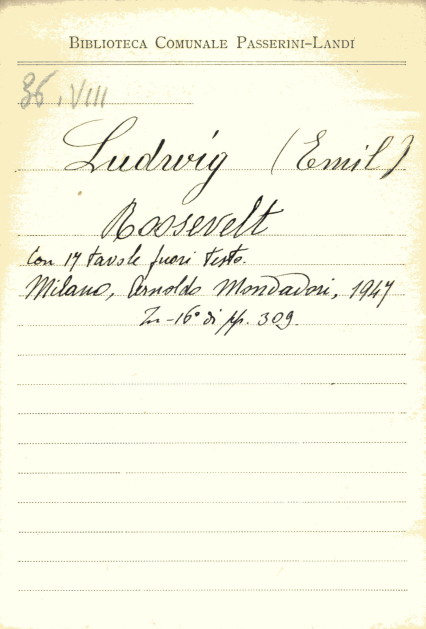 BIBLIOTECA COMUNALE PASSERINI-LANDI
36. VIII
Ludwig (Emil)
Roosevelt
Con 17 tavole fuori testo.
Milano, Arnoldo Mondadori, 1947
In-16° di pp. 309.